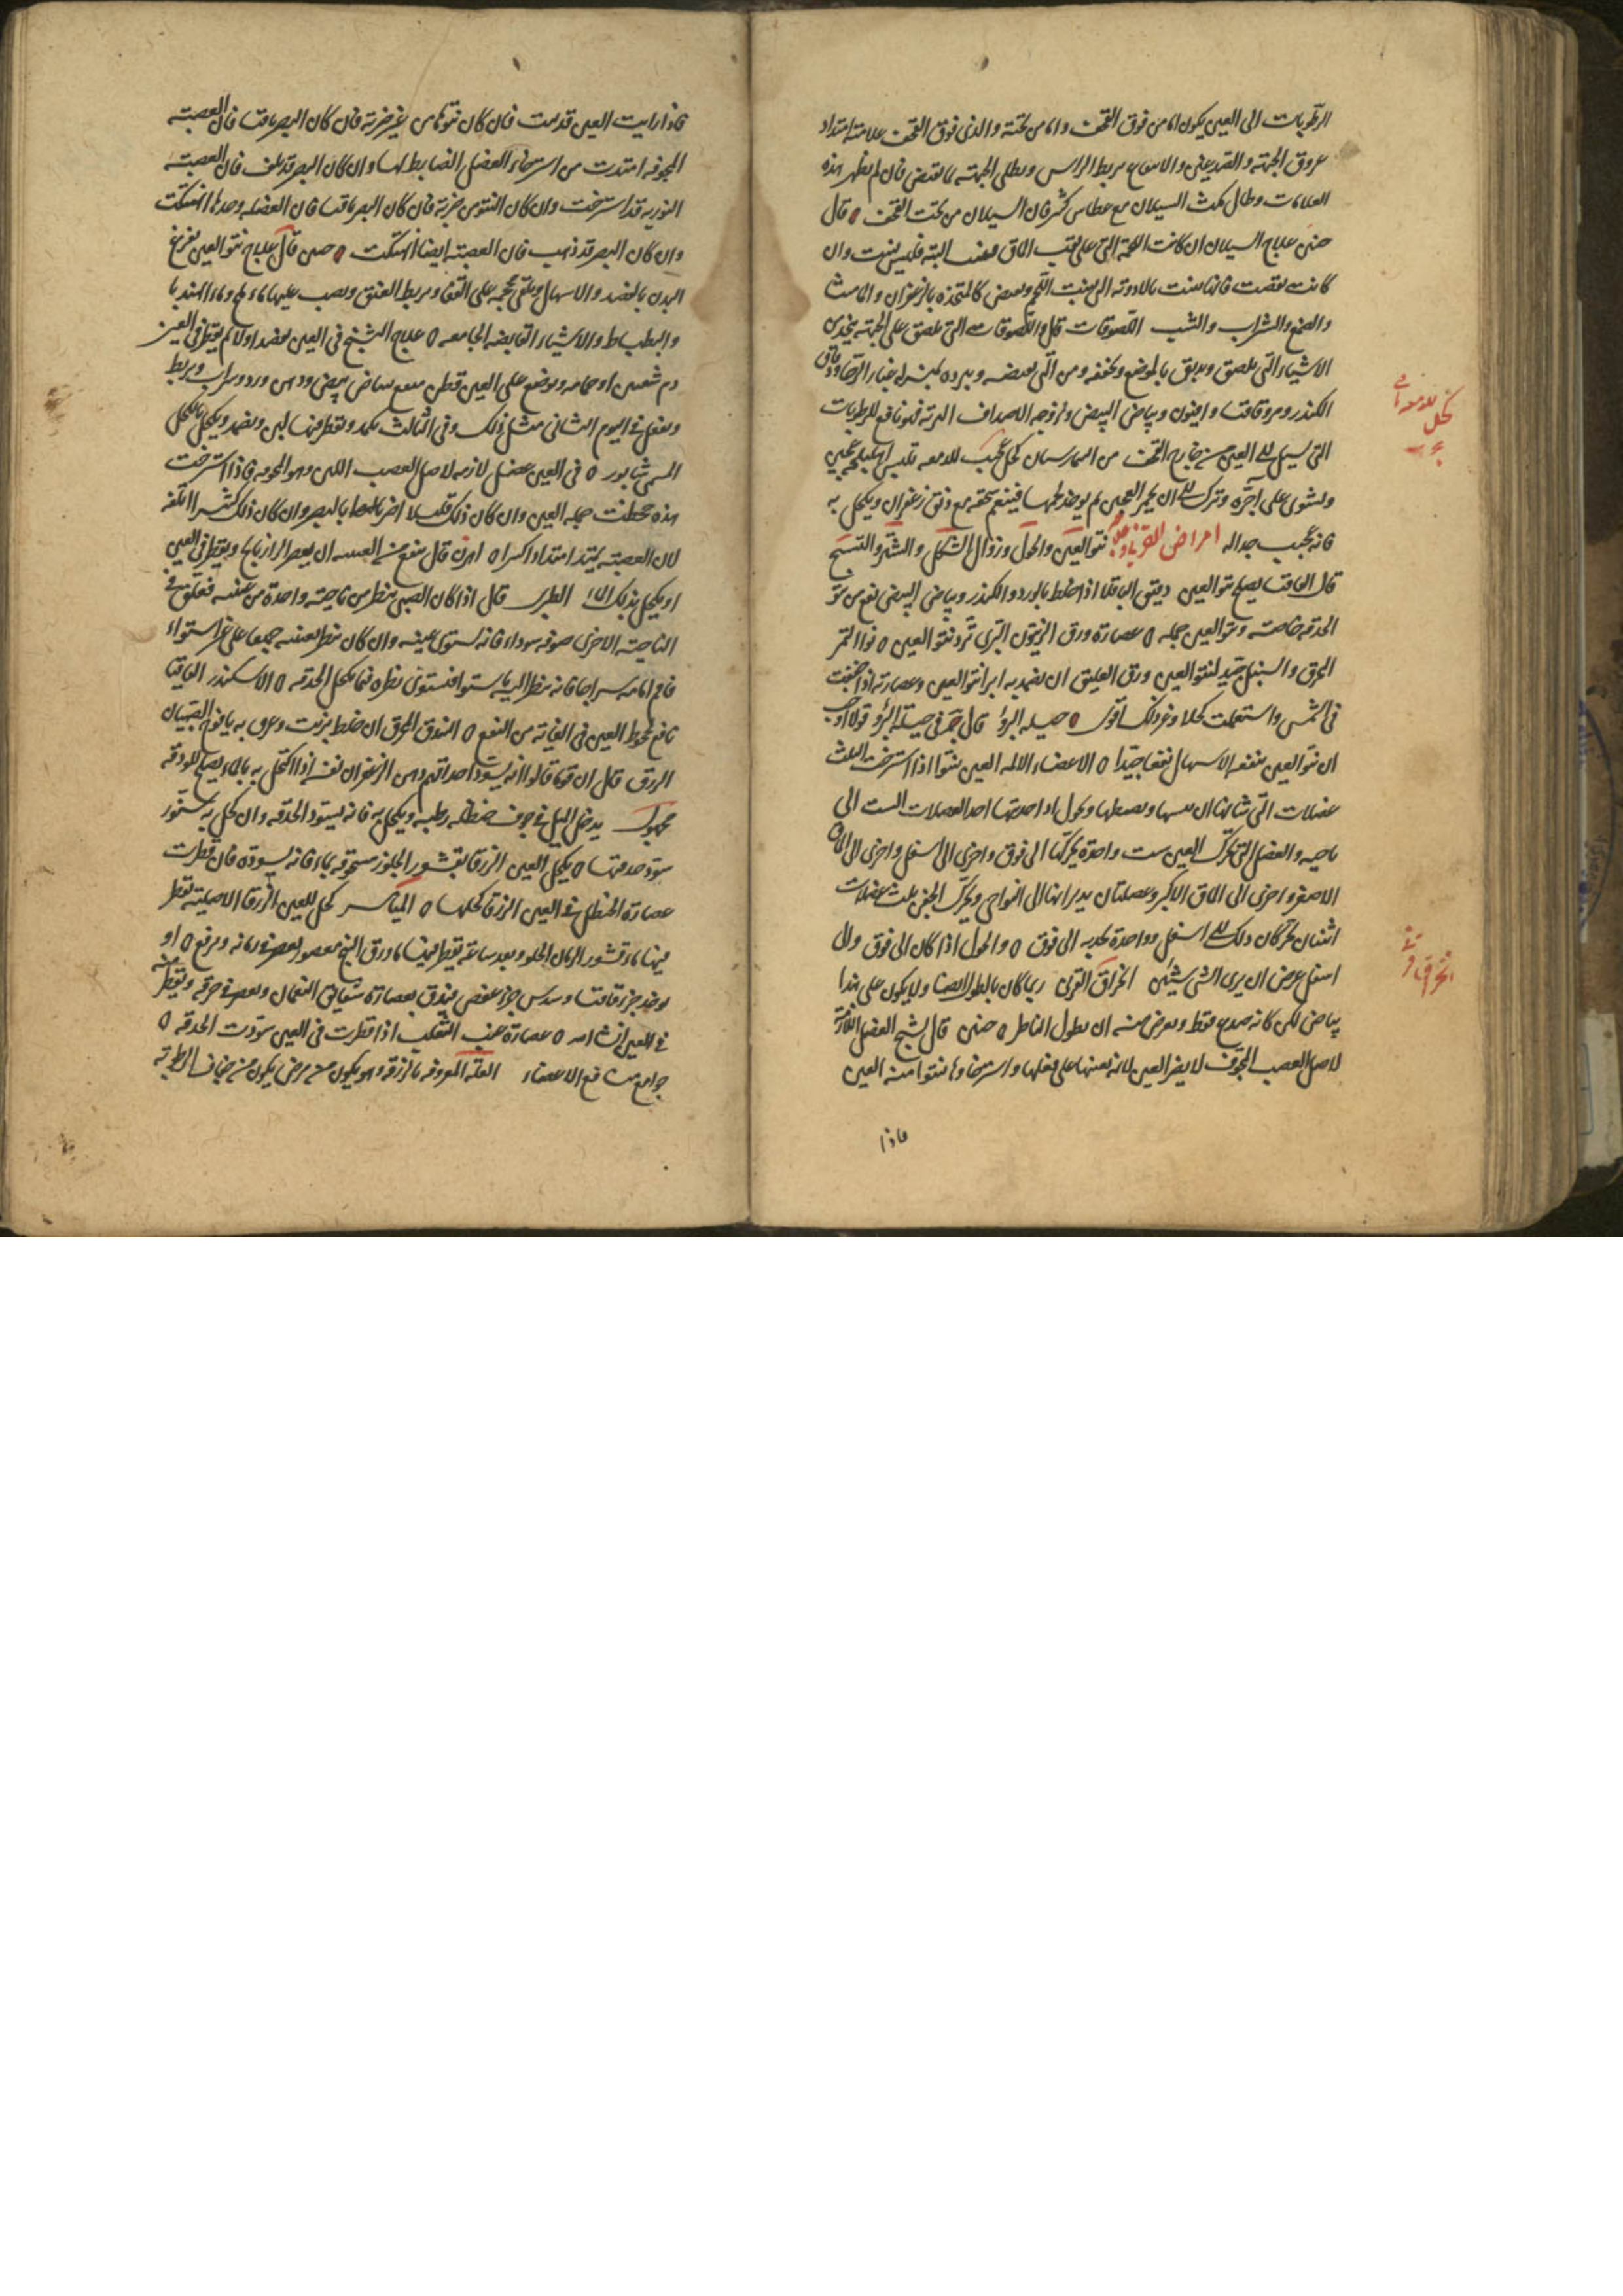 الرطوبات الى العين يكون اما من فوق القحف واما من تحته والذى فوق القحف علامته امتداد
عروق الجبهة والصدغين والانتفاع بربط الراس وطلى الجبهة بما يقبض فان لم يظهر هذه
العلامات وطال مكث السيلان مع عطاس كثير فان السيلان من تحت القحف ه قال
حنين علاج السيلان ان كانت اللحمة التى على ثقب الماق فنيت البتة فليس ينبت وان
كانت نقصت فانها تنبت بالادوية التى تنبت اللحم وتقبض كالمتخذة بالزعفران والماميثا
والصبر والشراب والشب اللصوقات قال واللصوقات التى تلصق على الجبهة يتخذ من
الاشياء التى تلصق ويدبق بالموضع وتجففه ومن التى تقبضه وتبرده بمنزلة غبار الرحا ودقاق
الكندر ومر واقاقيا وافيون وبياض البيض ولزوجة الاصداف البرية فهو نافع للرطوبات
التى تسيل الى العين من خارج القحف من البيمارستان كحل عجيب للدمعة تلبس اهليلجة بعجين
وتشوى على آجرة وتترك الى ان يحمر العجين ثم يوخذ لحمها فينعم سحقه مع دانق زعفران ويكتحل به
فانه عجيب جدا له امراض نتو العين والحول وزوال الشكل والشتر والتشنج
قال مما يصلح نتو العين دقيق الباقلا اذا خلط بالورد والكندر وبياض البيض نفع من نتو
الحدقة خاصة ونتو العين جملة ه عصارة ورق الزيتون البرى ترد نتو العين ه نوا التمر
المحرق والسنبل جيد لنتو العين ورق العليق ان يضمد به ابرا نتو العين وعصارته اذا جففت
فى الشمس واستعملت كحلا وغير ذلك اقوى ه حيلة البرؤ قال ج فى حيلة البرؤ قولا اوجب
ان نتو العين ينفعه الاسهال نفعا جيدا ه الاعضاء الالمة العين ينتوا اذا استرخت الثلث
عضلات التى شانها ان تمسها وتضبطها وتحول اذا احدتها احد العضلات الست الى
ناحية والعضل التى تحرك العين ست واحدة يحركها الى فوق واخرى الى اسفل واخرى الى الماق
الاصغر واخرى الى الماق الاكبر وعضلتان يديرانها الى النواحى ويحرك الجفن ثلث عضلات
اثنتان تحركان ذلك الى اسفل وواحدة تجذبه الى فوق ه والحول اذا كان الى فوق والى
اسفل عرض ان يرى الشى شيئين انخراق القرنى ربما كان بالطول ايضا ولا يكون على هذا
بياض لكن كانه صدع فقط ويعرض منه ان يطول الناظر ه حنين قال تشنج العضل اللازمة
لاصل العصب المجوف لا يضر العين لانه يعينها على فعلها واسترخاوها ينتوا منه العين
فاذا
كحل للدمعة نافع
انخراق قرنية
فاذا رايت العين قد نتت فان كان نتوها من غير ضربة فان كان البصر باقيا فان العصبة
المجوفة امتدت من استرخاء العضل الضابط لها وان كان البصر قد تلف فان العصبة
النورية قد استرخت وان كان النتو من ضربة فان كان البصر باقيا فان العضلة وحدها انهتكت
وان كان البصر قد ذهب فان العصبة ايضا انهتكت ه حنين قال علاج نتو العين تفريغ
البدن بالفصد والاسهال وتلقى محجمة على القفا وبربط العنق ويصب عليها ماء ملح وماء الهندبا
والبطباط والاشياء القابضة الجامعة ه علاج التشنج فى العين يفصد اولا ثم يقطر فى العين
دم شفنين او حمامة ويوضع على العين قطن منقع ببياض بيض ودهن ورد وشراب ويربط
ويفعل فى اليوم الثانى مثل ذلك وفى الثالث يكمد ويقطر فيها لبن ويضمد ويكحل بالكحل
المسمى شابور ه فى العين عضل لازمه لاصل العصب اللين وهو المجوف فاذا استرخت
هذه جحظت جملة العين وان كان ذلك قليلا لا اضر بالبصر وان كان ذلك كثيرا اتلفه
لان العصبة يمتد امتدادا كثيرا ه اهرن قال ينفع من ان يعصر الرازيانج ويقطر فى العين
او يكحل بذلك الماء الطبرى قال اذا كان الصبى ينظر من ناحية واحدة من عينيه فعلق فى
الناحية الاخرى صوفة سوداء فانه يستوى عينيه وان كان ينظر بعينيه جميعا على غير استواء
فاقم امامه سراجا فانه ينظر اليه باستواء فيستوى نظره فيما يكحل الحدقة ه الاسكندر
نافع لجحوظ العين فى الغاية من النفع ه البندق المحرق ان خلط بزيت وغرق به يافوخ الصبيان
الزرق قال ان قوما قالوا انه يسود احداقهم دهن الزعفران نفسه اذا اكتحل به بالماء يصلح للزرقة
مجهول يدخل الميل فى جوف حنظلة رطبة ويكحل به فانه يسود الحدقة وان كحل به سنور
سود حدقتها ه يكحل العين الزرقا بقشور الجلوز مسحوقة بماء فانه يسوده فان قطرت
عصارة الحنظل فى العين الزرقا كحلها ه المياسر كحل للعين الزرقا الاصلية يقطر
فيها ماء قشور الرمان الحلو وبعد ساعة يقطر فيها ماء ورق البنج معصور يعصر فى زمانه ويرفع ه او
يوخذ جزء اقاقيا وسدس جزء عفص يدق بعصارة شقايق النعمان ويعصر فى خرقة ويقطر منه
فى العين انشا الله ه عصارة عنب الثعلب اذا قطرت فى العين سودت الحدقة ه
جوامع منافع الاعضاء العلة المعروفة بالزرقة وهو يكون من مرض يكون من جفاف الرطوبة